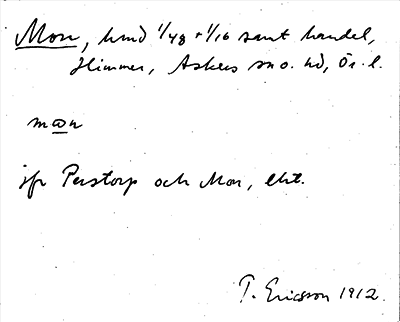 Mon, hmd 1/48 + 1/16 samt handel,
Himmer, Askers sn o. hd, Ör. l.
mɷn
jfr Perstorp och Mon, lht.
T. Ericsson 1912.